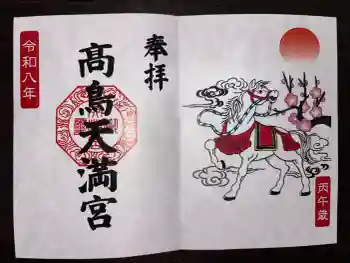 奉拝
髙鳥天満宮
令和八年
丙午歳